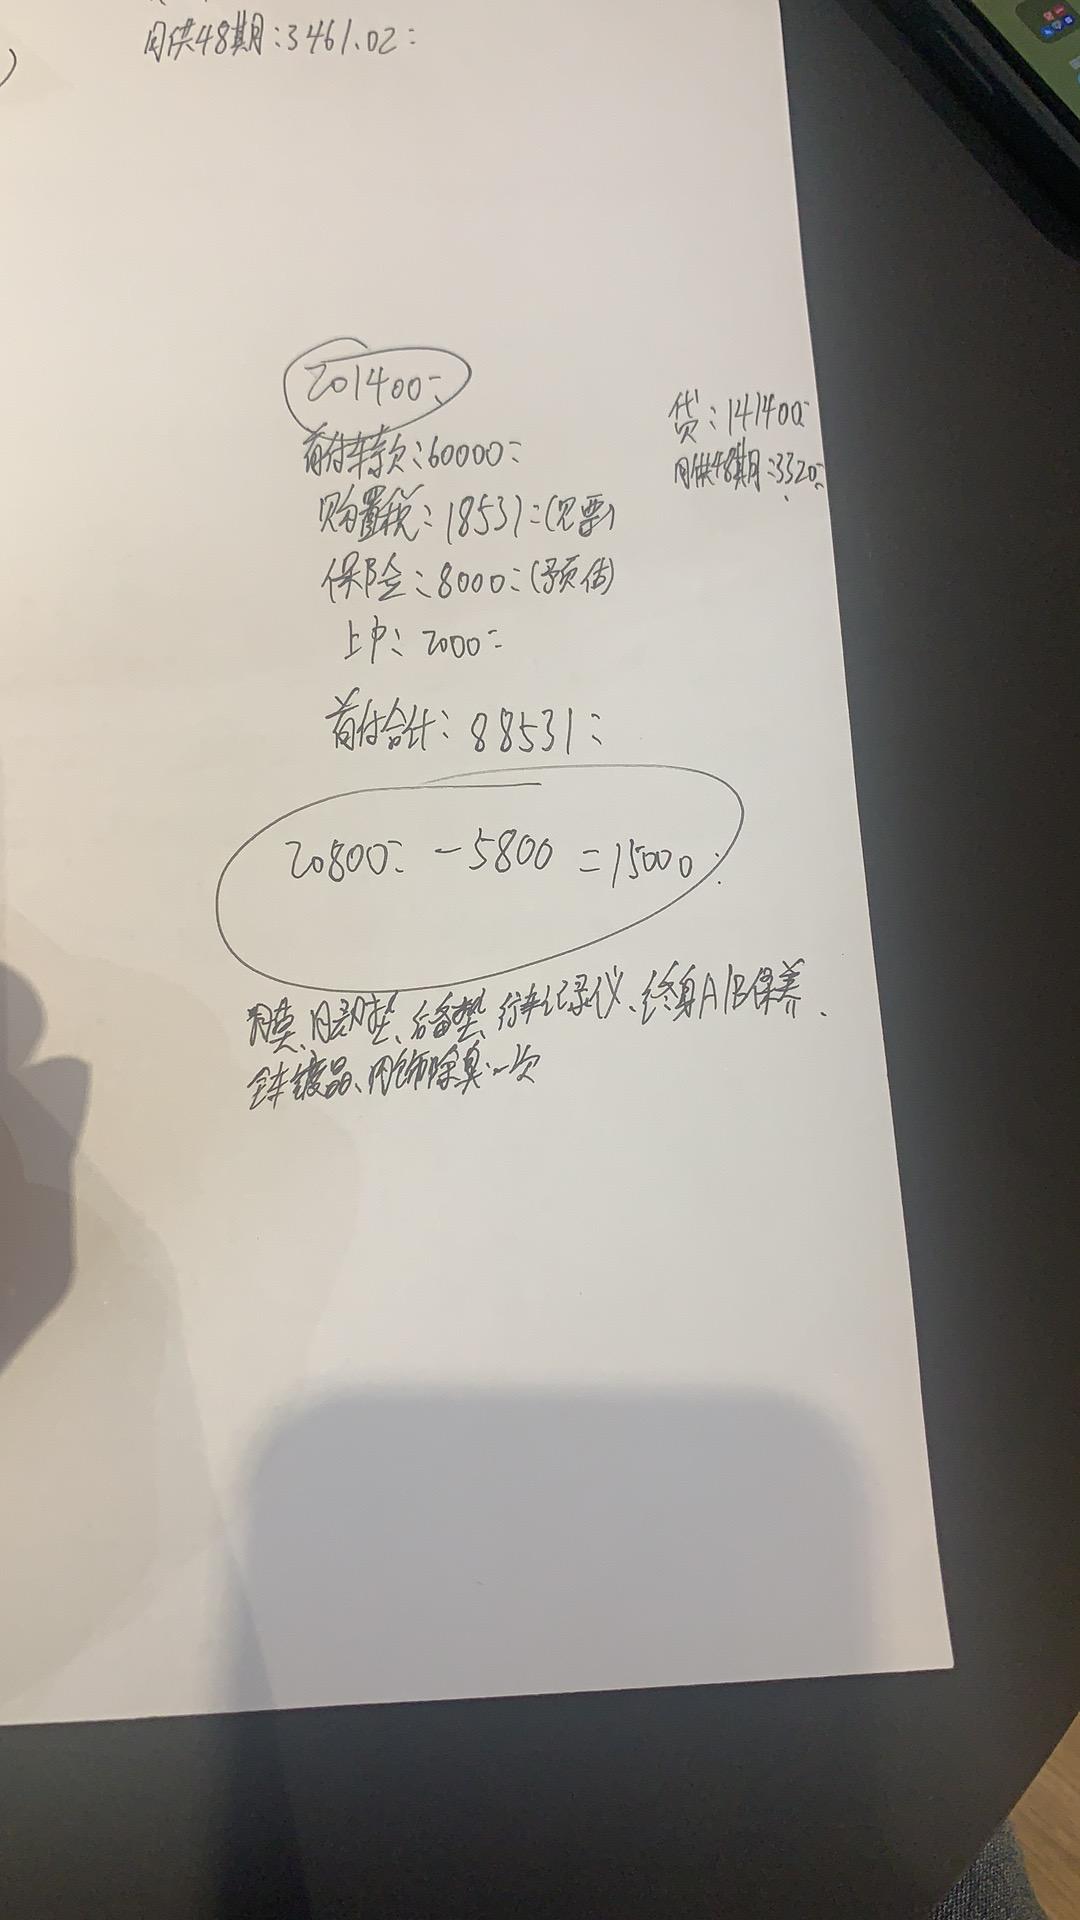 月供48期:3461.02
201400
首付车款:60000
贷:141400
购置税:18531(见票)
月供48期:3320
保险:8000(预估)
上户:2000
首付合计:88531
20800-5800=15000
脚垫、后备垫、行车记录仪、终身A/B保养、
全车镀晶、内饰除臭一次